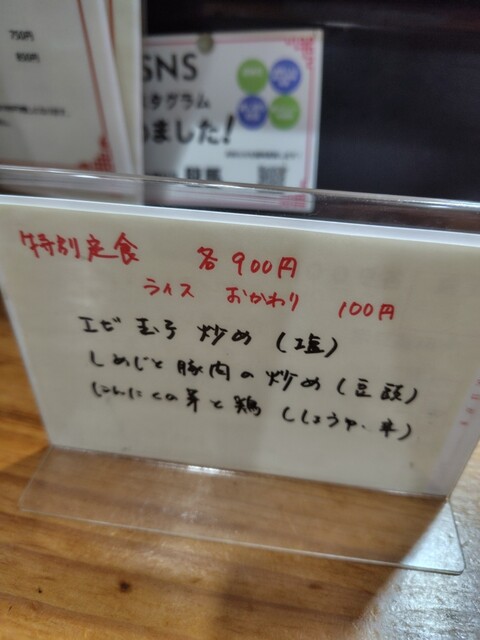 750円
850円
SNS
スタグラム
めました!
特別定食 各900円
ライス おかわり 100円
エビ玉子炒め(塩)
しめじと豚肉の炒め(豆鼓)
にんにくの芽と鶏(しょうゆ、辛)